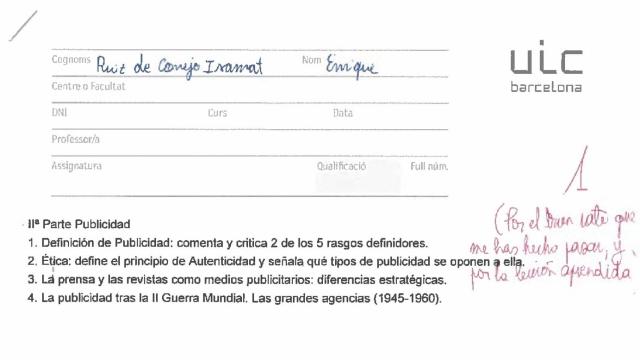 Cognoms Ruiz de Conejo Iramat Nom Enrique
uic
barcelona
Centre o Facultat
DNI Curs Data
Professor/a
Assignatura Qualificació Full núm.
1
(Por el buen rato que
me has hecho pasar, y
por la lección aprendida
IIª Parte Publicidad
1. Definición de Publicidad: comenta y critica 2 de los 5 rasgos definidores.
2. Ética: define el principio de Autenticidad y señala qué tipos de publicidad se oponen a ella.
3. La prensa y las revistas como medios publicitarios: diferencias estratégicas.
4. La publicidad tras la II Guerra Mundial. Las grandes agencias (1945-1960).